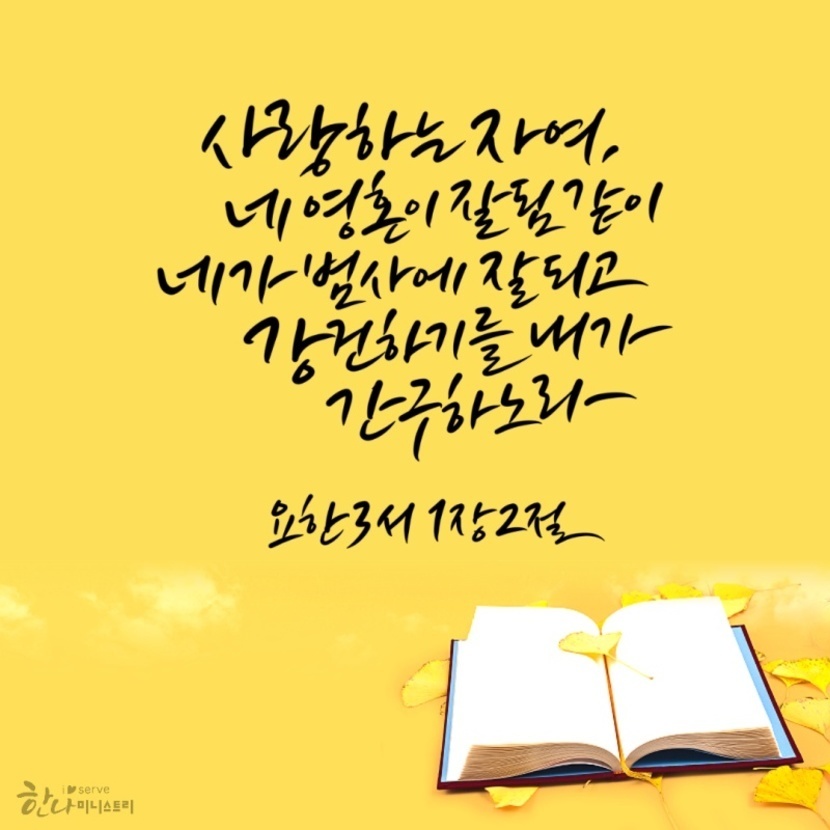 사랑하는 자여,
네 영혼이 잘됨 같이
네가 범사에 잘되고
강건하기를 내가
간구하노라
요한3서 1장2절
i serve
한나미니스트리